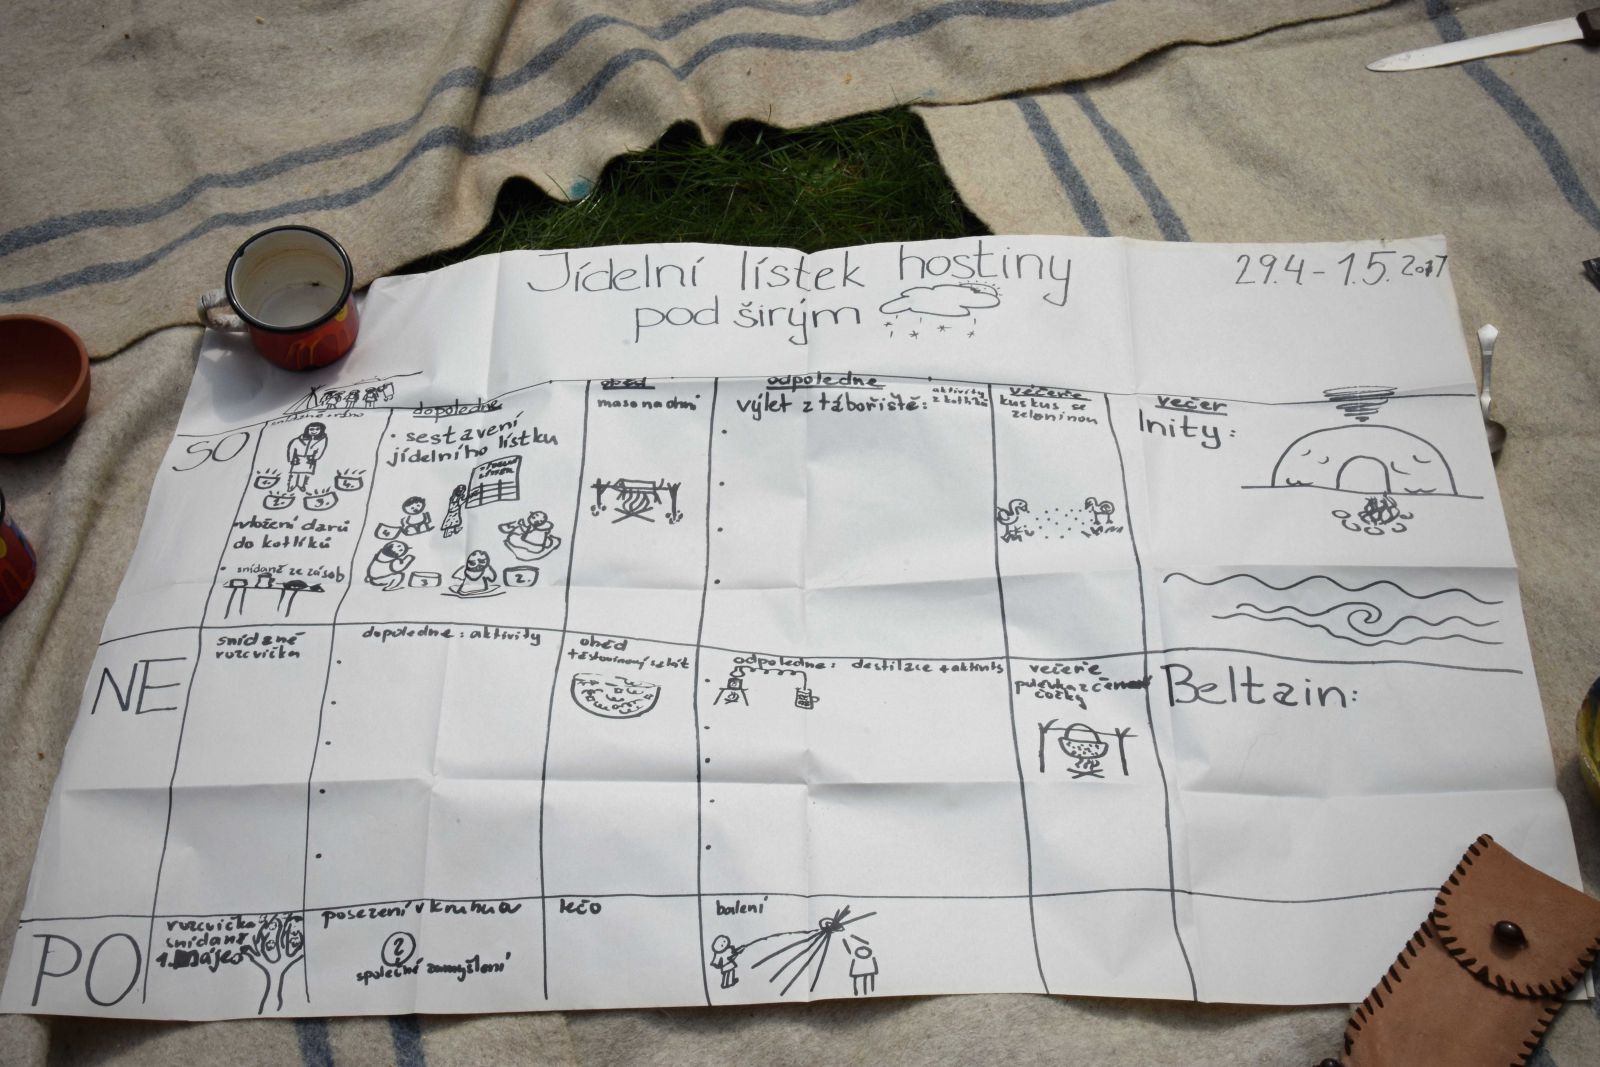 Jídelní lístek hostiny
pod širým
29.4 - 1.5. 2017
dopoledne
odpoledne
večeře
večer
SO
1.
2.
3.
4.
vložení darů
do kotlíků
• snídaně ze zásob
• sestavení
jídelního lístku
3.
2.
maso na ohni
výlet z tábořiště:
aktivity
z kotlíků
kuskus se
zeleninou
Inity:
NE
snídaně
rozcvička
dopoledne: aktivity
oběd
těstovinový salát
odpoledne: destilace + aktivity
večeře
polévka z červené
čočky
Beltain:
PO
rozcvička
snídaně
1. máje
posezení v kruhu
?
společné zamyšlení
lečo
balení